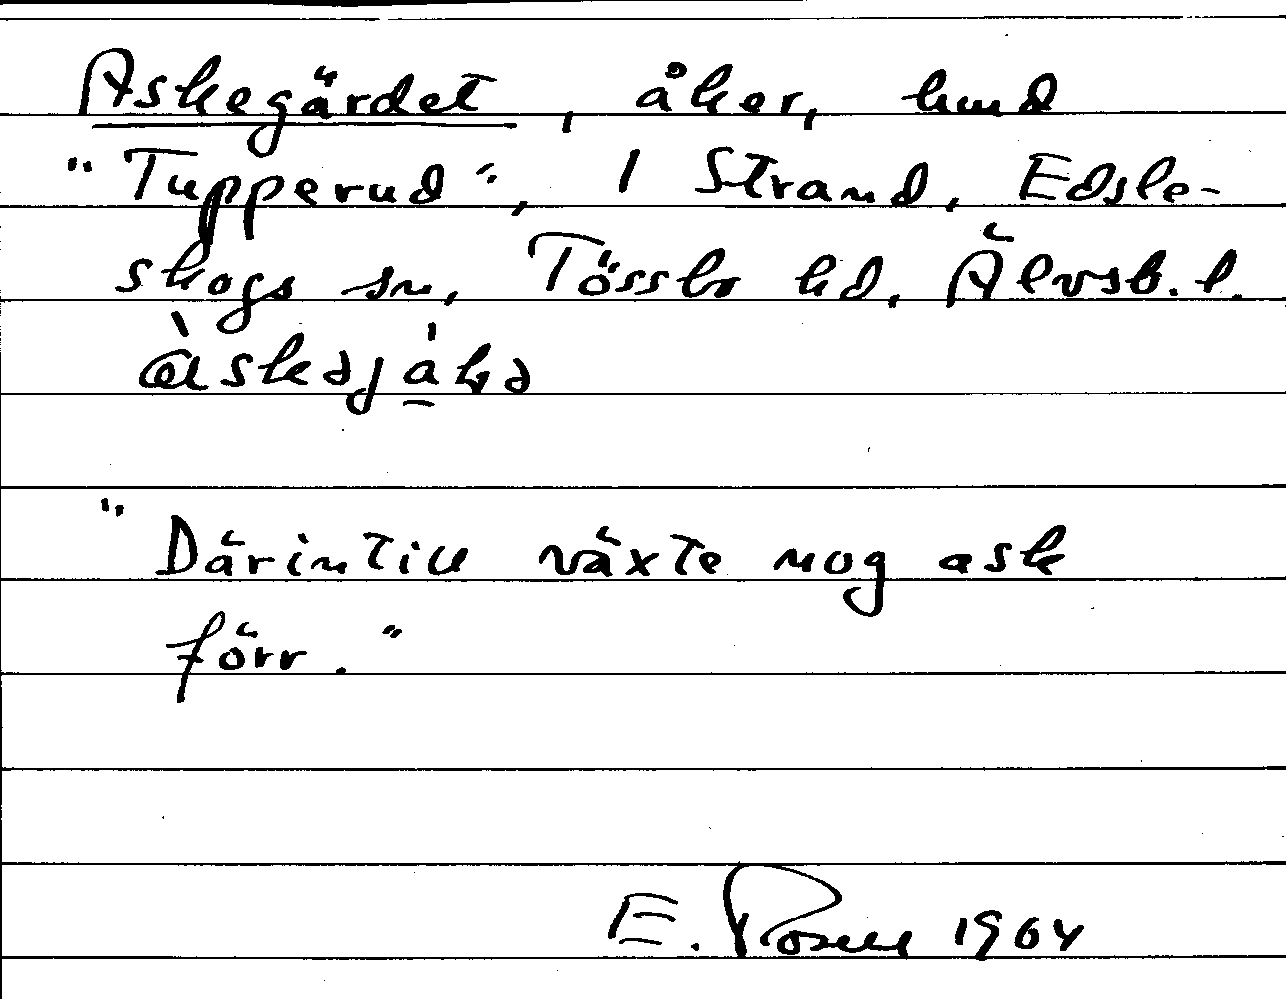 Askegärdet, åker, hmd
"Tupperud", 1 Strand, Edsle-
skogs sn, Tössbo hd, Älvsb. l.
"Därintill växte nog ask
förr."
E. Rosell 1964